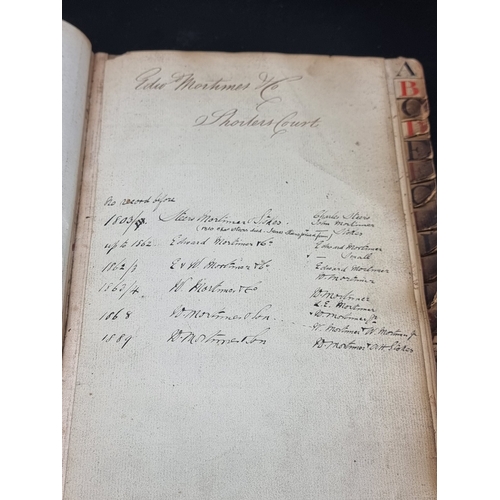 Edw Mortimer & Co
Shorters Court
No record before
1803/ Steers Mortimer & Sisker. Charles Steers
John Mortimer
— Sisker
up to 1862 Edward Mortimer & Co Edward Mortimer
— Small
1862/3 E & W Mortimer & Co Edward Mortimer
W Mortimer
1863/4 W Mortimer & Co W Mortimer
L.E. Mortimer
1868 W Mortimer & Son W Mortimer Jr
W. Mortimer & W. Mortimer Jr
1889 W Mortimer & Son W. Mortimer &
A
B
C
D
E